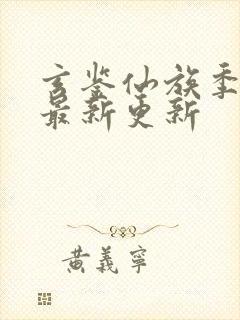 玄鉴仙族季
最新更新
黄義寧